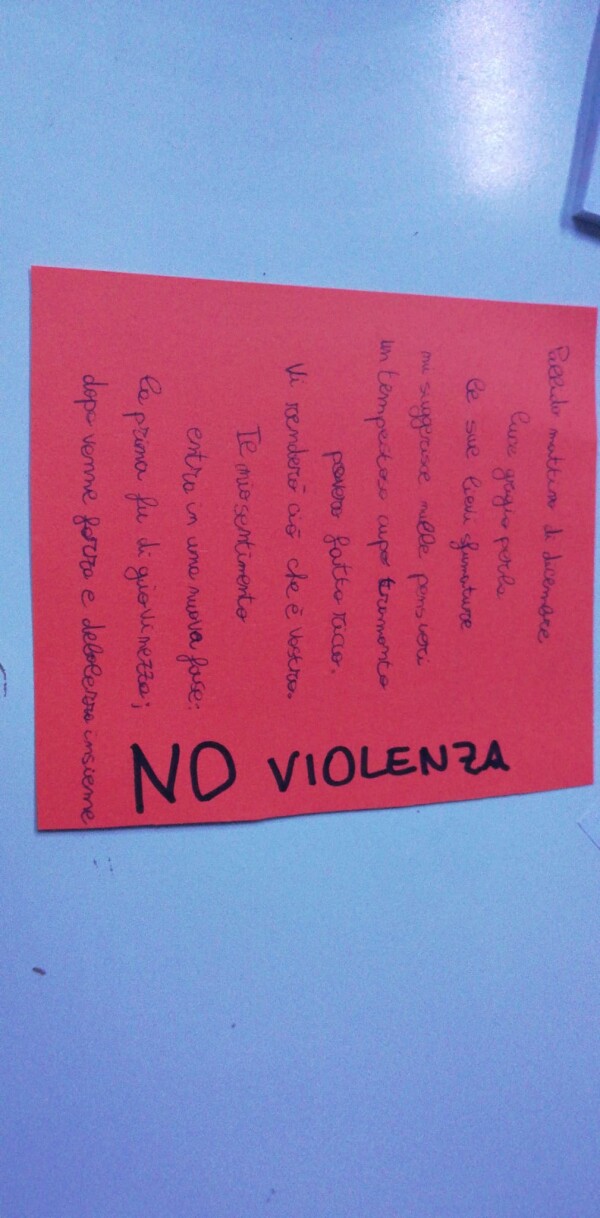 Pallido mattino di dicembre
luce grigio perla
le sue lievi sfumature
mi suggerisce mille pensieri
un tempestoso cupo tramonto
pareva fatto
Vi renderò ciò che è vostro.
Il mio sentimento
entra in una nuova fase:
la prima fu di giovinezza;
dopo venne forza e debolezza insieme
NO VIOLENZA